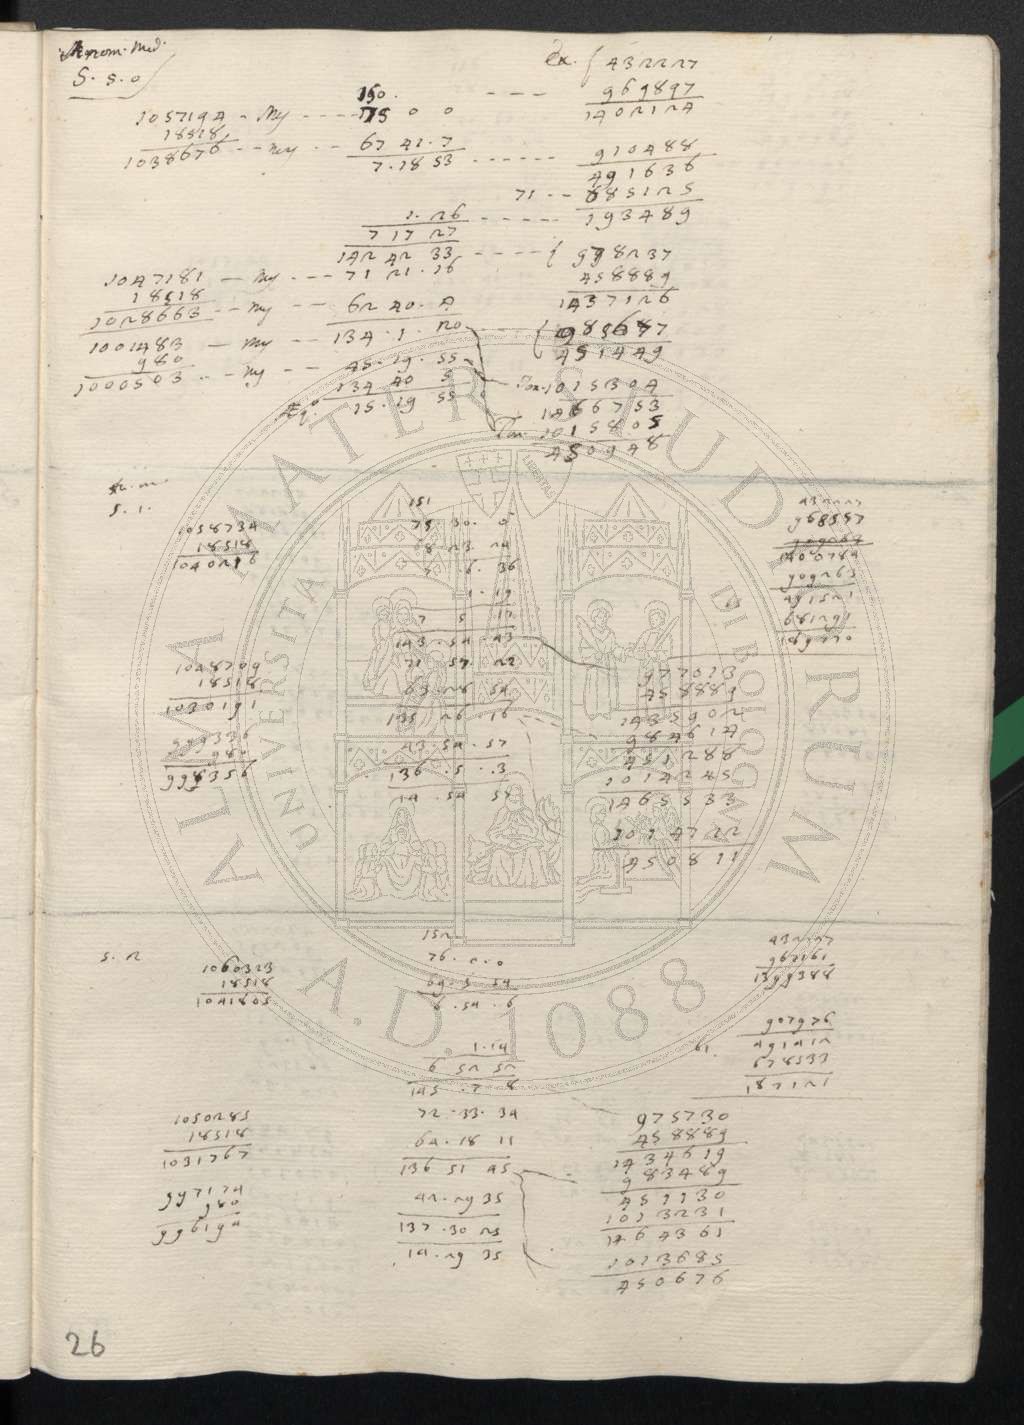 Anom. Med.
S. s. 0
Ex. { 432227
150. - - - 969897
1057194 - My - - - - 75 0 0 1402124
18518
1038676 - - My - - 67 41 . 7
7 . 18 53 - - - - - - 910488
491636
71 - - 685125
1 . 26 - - - - - 193489
7 17 27
142 42 33 - - - - { 978237
1047181 - My - - - 71 21 . 16 458889
18518 1437126
1028663 - - My - - 62 40 . 4
134 . 1 . 20
1001483 - My - - 451449
980 45 . 19 . 55
1000503 - - My - - 134 40 5 1015304
15 . 19 55 1466753
1015805
450948
S. 1.
151 432227
1058734 75 30 . 0 968557
18518 68 23 24
1040216 7 6 . 36 1400784
1 . 19 909263
7 5 17 491521
143 . 54 . 43 681291
1048709 71 57 22 977013
18518 63 28 54 458889
1030191 135 26 . 16 1435902
984614
999336 43 . 54 . 57 451288
980 136 . 5 . . 3 1014245
998356 14 . 54 57 1465533
1014722
450811
S. 2
152 432227
1060323 76 . 0 . 0 967161
18518 69 . 5 54 1399388
1041805 6 . 54 . 6
907976
1 . 14 61. 491412
6 52 52 678533
145 . 7 . 8 187121
1050285 72 . 33 . 34 975730
18518 64 . 18 11 458889
1031767 136 51 45 1434619
983489
997174 42 . 29 35 451130
980 137 . 30 25 1013231
996194 14 . 29 35 1464361
1013685
450676
26
ALMA MATER STUDIORUM
UNIVERSITAS DI BOLOGNA
LIBERTAS
A.D. 1088